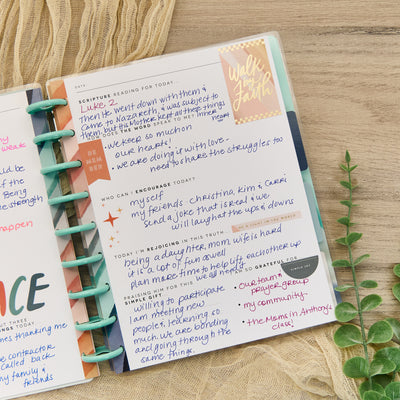 DATE
SCRIPTURE READING FOR TODAY...
Luke 2
Then He went down with them &
came to Nazareth, & was subject to
them, but his Mother kept all these things
inher
heart
HOW DOES THE WORD SPEAK TO ME?
• we keep so much on
our hearts!
• we are doing it with love -
need to share the struggles too
WHO CAN I ENCOURAGE TODAY?
myself
my friends Christina, Kim & Carri
send a joke that is real & we
will laugh the ups & downs
TODAY I'M REJOICING IN THIS TRUTH...
being a daughter, mom, wife is hard
it is a lot of fun aswell
plan more time to help lift eachother up
we all need it
PRAISING HIM FOR THIS
SIMPLE GIFT
SO GRATEFUL FOR
willing to participate
I am meeting new
people, learning so
much, we are bonding
and going through the
same things.
• Our team &
prayer group
• my community
• the Moms in Anthony's
class!
Walk
by
Faith
BE A LIGHT IN THE WORLD
Being
strength
happen
ACE
THREE
TODAY
thanking me
contractor
called back
my family &
friends